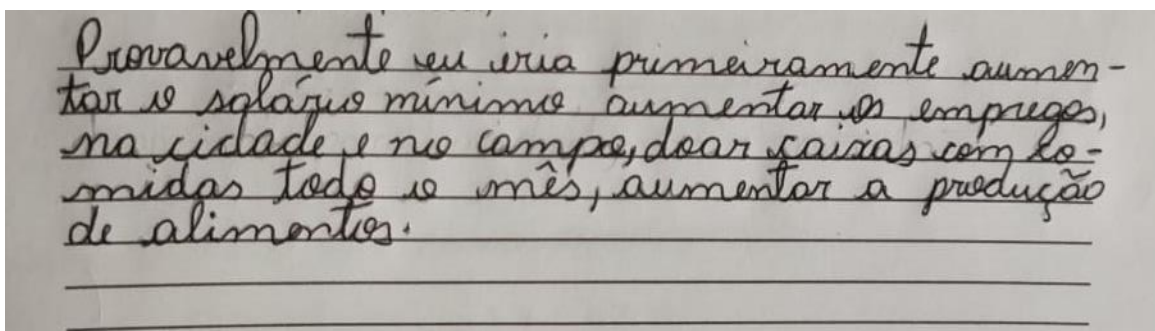 Provavelmente eu iria primeiramente aumen-
tar o salário mínimo aumentar os empregos,
na cidade e no campo, doar caixas com co-
midas todo o mês, aumentar a produção
de alimentos.